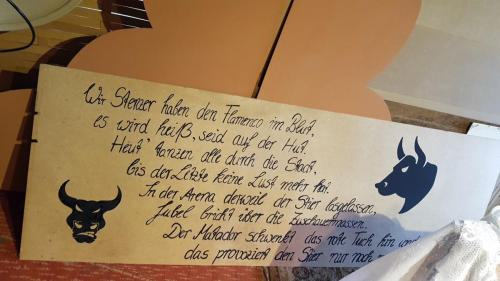 Wir Stenzer haben den Flamenco im Blut,
es wird heiß, seid auf der Hut.
Heut' tanzen alle durch die Stadt,
bis der Letzte keine Lust mehr hat.
In der Arena derweil der Stier losgelassen,
Jubel bricht über die Zuschauermassen.
Der Matador schwenkt das rote Tuch hin und
das provoziert den Stier nur noch